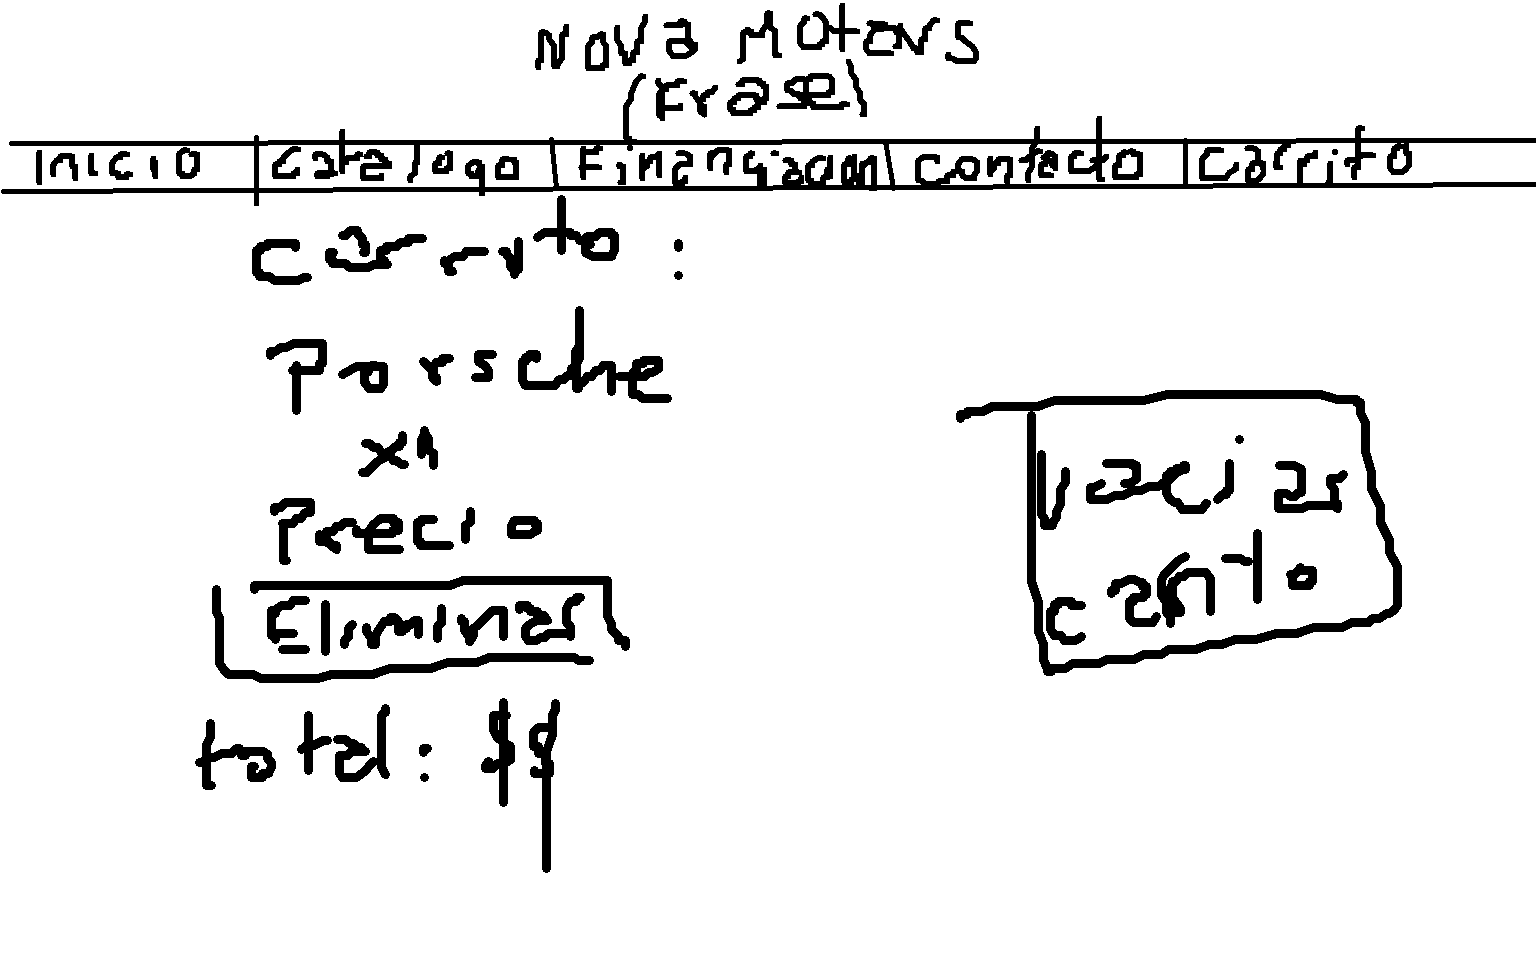 Nova Motors
(Frase)
Inicio Catalogo Financiacion Contacto Carrito
Carrito :
Porsche
x1
Precio
Eliminar
total: $$
Vaciar
carrito